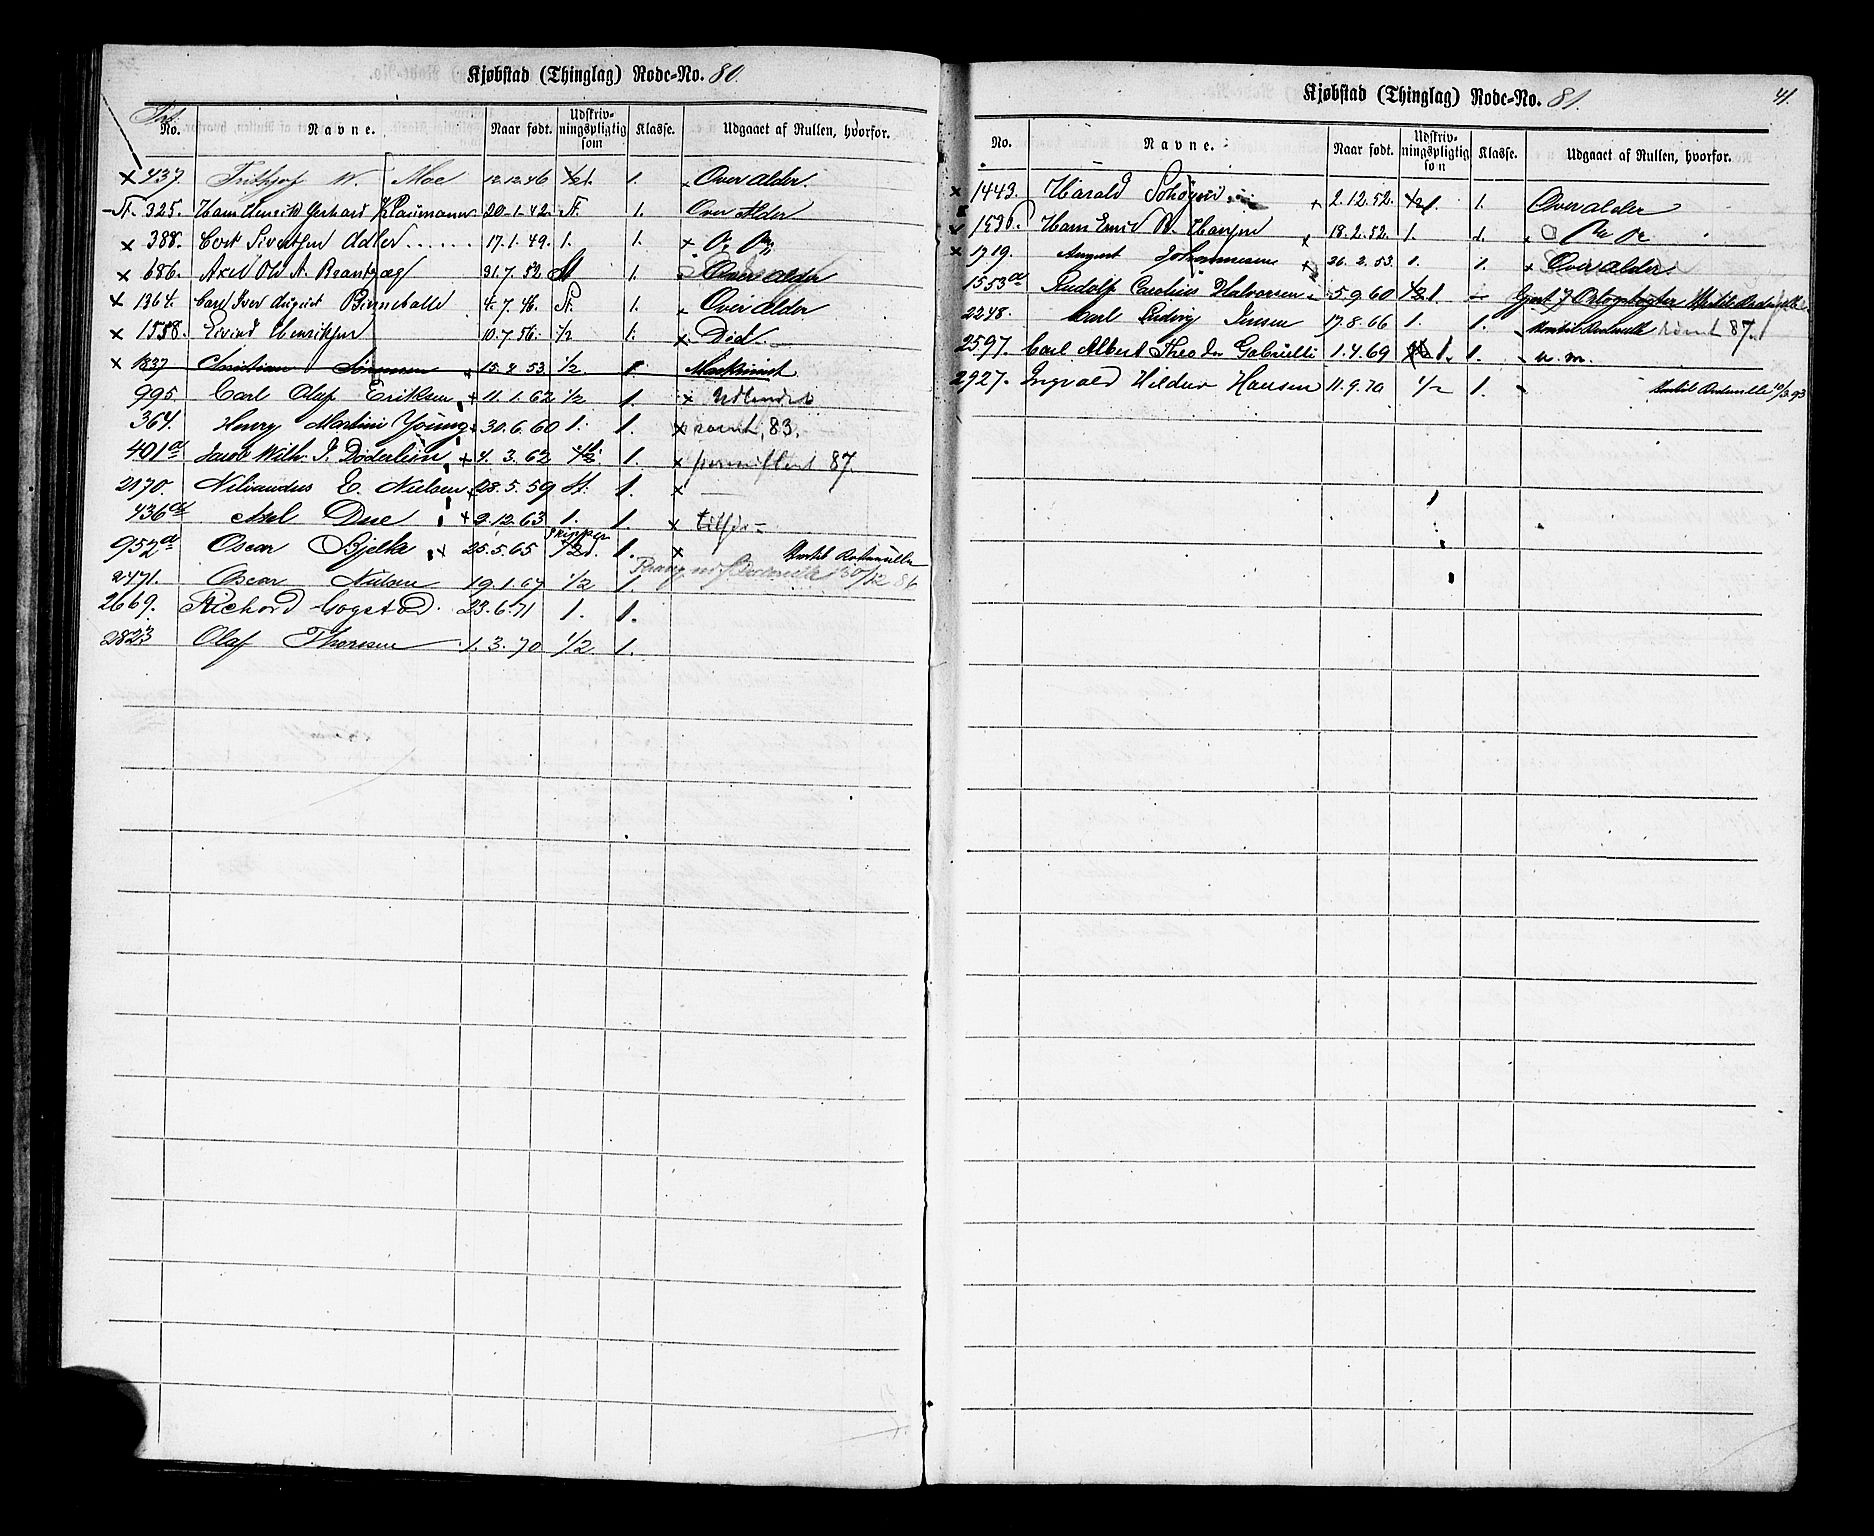 Kjøbstad (Thinglag) Rode-No. 80.
No. Navne. Naar født. Udskriv-ningspligtig som Klasse. Udgaaet af Rullen, hvorfor.
× 437. Frithjof W. Moe 12.12.46 1. 1. Over alder.
St. 325. Hans Henrik Gerhard Klaumann 20.1.42. St. 1. Over Alder
× 388. Sivertsen Adler 17.1.49. 1. 1. ×
× 686. Axel Ole A. Brantzæg 31.7.52. 1. Over alder
× 1364. Carl Iver August 4.7.46. St. 1. Over alder
× 1558. Eivind Henriksen 10.7.56. 1/2 1. × Død.
× 1837 Christian Sørensen 15.2.53 1/2 1 Maskinist
995 Carl Olaf Eriksen + 11.1.62 1/2 1. × Udlandet
364. Henry Martini Young 30.6.60 1. 1. × rømt, 83.
401a Jacob Wilh. J. Døderlein + 4.3.62 1. × permitteret 87.
2170. Niliandus E. Nielsen 28.5.59 St. 1. ×
436a Axel Due + 9.12.63 1. 1. ×
952a Oscar Bjelke × 25.5.65 Skipper 1. ×
2471. Oscar Nielsen 19.1.67 1/2 1. 30/12 86
2669. Richard Gogstad. 23.6.71 1. 1.
2823 Olaf Thoresen 1.3.70 1/2 1.
Kjøbstad (Thinglag) Rode-No. 81.
41.
No. Navne. Naar født. Udskriv-ningspligtig som Klasse. Udgaaet af Rullen, hvorfor.
× 1443. Harald + 2.12.52. 1. Over alder
1530. Hans Emil Hansen × 18.2.52. 1. 1.
× 1719. August Johannesen 26.2.53. 1. 1. × Over alder.
1553a Rudolf Carolius Halvorsen 5.9.60 1 – Gjort 7 Ortogstogter
2248. Carl Ludvig Jensen 17.8.66 1. 1. rømt 87.
2597. Carl Albert Theodor Gabrielli 1.4.69 1. 1. u. m.
2927. Ingvald Hildur Hansen 11.9.70 1/2 1. 10/3 93